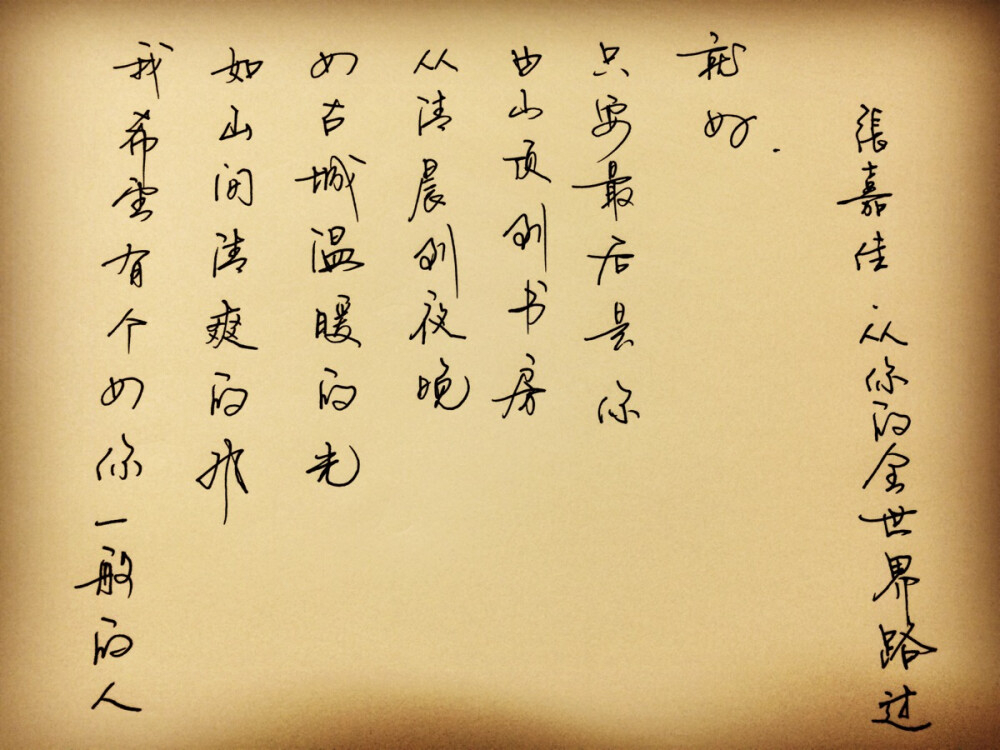 我希望有个如你一般的人
如山间清爽的
如古城温暖的光
从清晨到夜晚
由山顶到书房
只要最后是你
就好.
張嘉佳 从你的全世界路过